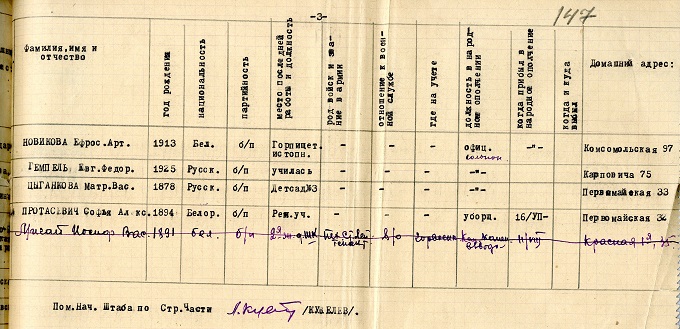 -3-
147
Фамилия,имя и отчество | год рождения | национальность | партийность | место последней работы и должность | род войск и звание в армии | отношение к военной службе | где на учете | должность в народное ополчении | когда прибыл в народное ополчение | когда и куда выбыл | Домашний адрес:
НОВИКОВА Ефрос.Арт. 1913 Бел. б/п Горпищет. истопн. - - - офиц. -"- Комсомольская 97
ГЕМПЕЛЬ, Евг.Федор. 1925 Русск. б/п училась - - - -"- -"- Карповича 75
ЦЫГАНКОВА Матр.Вас. 1878 Русск. б/п Детсад№3 - - - -"- -"- Первомайская 33
ПРОТАСЕВИЧ Софья Алкс. 1894 Белор. б/п Реж.уч. - - - уборщ. 16/УП- Первомайская 34
Иосиф Вас. 1891 бел. б/п в/о Красная
Пом.Нач. Штаба по Стр.Части /КУЖЕЛЕВ/.